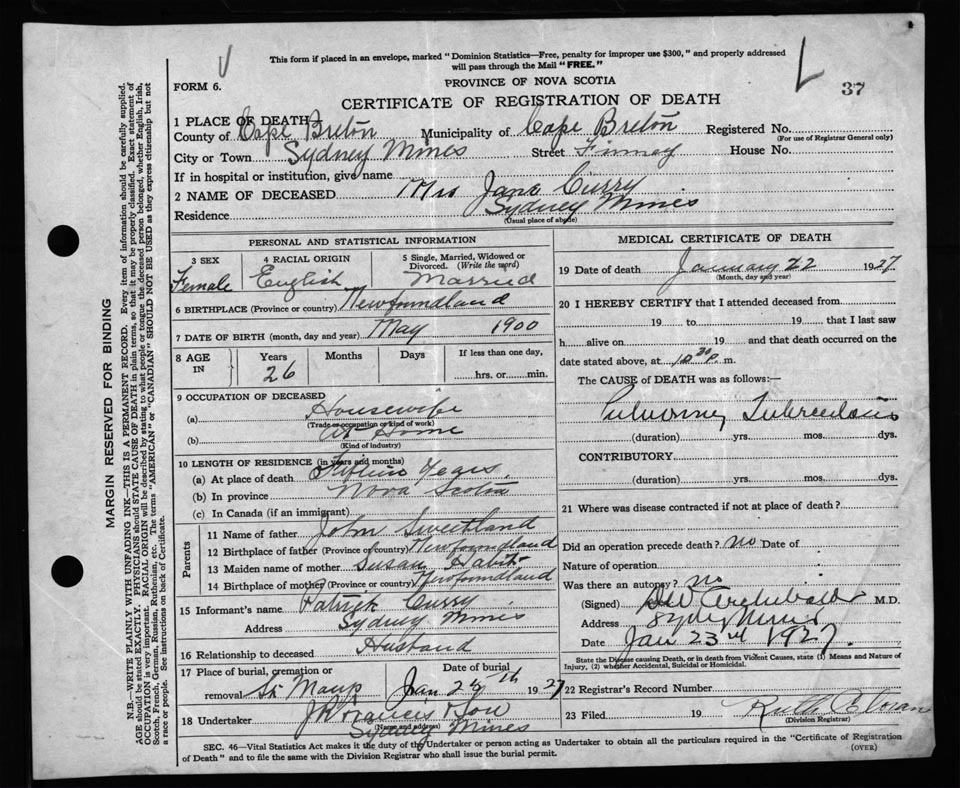 This form if placed in an envelope, marked "Dominion Statistics—Free, penalty for improper use $300," and properly addressed
will pass through the Mail "FREE."
FORM 6.
PROVINCE OF NOVA SCOTIA
37
CERTIFICATE OF REGISTRATION OF DEATH
1 PLACE OF DEATH
County of Cape Breton Municipality of Cape Breton Registered No.
(For use of Registrar General only)
City or Town Sydney Mines Street Finney House No.
If in hospital or institution, give name
2 NAME OF DECEASED Mrs Jane Curry
Residence Sydney Mines
(Usual place of abode)
PERSONAL AND STATISTICAL INFORMATION
3 SEX Female
4 RACIAL ORIGIN English
5 Single, Married, Widowed or Divorced. (Write the word) Married
6 BIRTHPLACE (Province or country) Newfoundland
7 DATE OF BIRTH (month, day and year) May 1900
8 AGE IN Years Months Days If less than one day,
26 hrs. or min.
9 OCCUPATION OF DECEASED
(a) Housewife
(Trade or occupation or kind of work)
(b) At Home
(Kind of industry)
10 LENGTH OF RESIDENCE (in years and months)
(a) At place of death Fifteen Years
(b) In province Nova Scotia
(c) In Canada (if an immigrant)
Parents
11 Name of father John Sweetland
12 Birthplace of father (Province or country) Newfoundland
13 Maiden name of mother Susan
14 Birthplace of mother (Province or country) Newfoundland
15 Informant's name Patrick Curry
Address Sydney Mines
16 Relationship to deceased Husband
17 Place of burial, cremation or removal St Marys
Date of burial Jan 24th 1927
18 Undertaker J Francis & Son
(Name and address)
Sydney Mines
MEDICAL CERTIFICATE OF DEATH
19 Date of death January 22 1927
(Month, day and year)
20 I HEREBY CERTIFY that I attended deceased from
19 to 19 that I last saw
h alive on 19 and that death occurred on the
date stated above, at 10 30 P. m.
The CAUSE of DEATH was as follows:—
Pulmonary Tuberculosis
(duration) yrs. mos. dys.
CONTRIBUTORY
(duration) yrs. mos. dys.
21 Where was disease contracted if not at place of death?
Did an operation precede death? no Date of
Nature of operation
Was there an autopsy? no
(Signed) Archibald M.D.
Address Sydney Mines
Date Jan 23rd 1927.
State the Disease causing Death, or in death from Violent Causes, state (1) Means and Nature of
Injury, (2) whether Accidental, Suicidal or Homicidal.
22 Registrar's Record Number
23 Filed 19 Ruth
(Division Registrar)
SEC. 46—Vital Statistics Act makes it the duty of the Undertaker or person acting as Undertaker to obtain all the particulars required in the "Certificate of Registration
of Death" and to file the same with the Division Registrar who shall issue the burial permit.
(OVER)
MARGIN RESERVED FOR BINDING
N.B.—WRITE PLAINLY WITH UNFADING INK—THIS IS A PERMANENT RECORD. Every item of information should be carefully supplied.
AGE should be stated EXACTLY. PHYSICIANS should STATE CAUSE OF DEATH in plain terms, so that it may be properly classified. Exact statement of
OCCUPATION is very important. RACIAL ORIGIN will be described by stating to what people or tongue the deceased person belonged, whether English, Irish,
Scotch, French, German, Russian, Ruthenian, etc. The terms "AMERICAN" or "CANADIAN" SHOULD NOT BE USED as they express citizenship but not
a race or people. See instructions on back of Certificate.